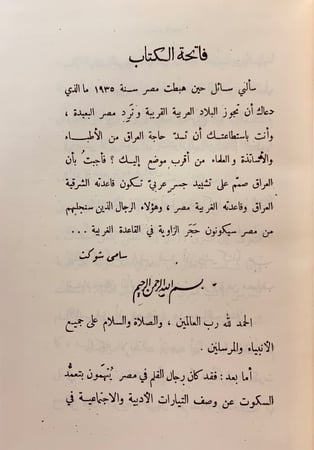 فاتحة الكتاب
سألني سائل حين هبطت مصر سنة ١٩٣٥ ما الذي
دعاك أن تجوز البلاد العربية القريبة وتَرِد مصر البعيدة ،
وأنت باستطاعتك أن تسدّ حاجة العراق من الأطباء
والأساتذة والعلماء من أقرب موضع إليك ؟ فأجبتُ بأن
العراق صمّم على تشييد جسر عربيّ تكون قاعدته الشرقية
العراق وقاعدته الغربية مصر ، وهؤلاء الرجال الذين سنجلبهم
من مصر سيكونون حَجَر الزاوية في القاعدة الغربية ...
سامي شوكت
بسم الله الرحمن الرحيم
الحمد لله رب العالمين ، والصلاة والسلام على جميع
الأنبياء والمرسلين .
أما بعد : فقد كان رجال القلم في مصر يُتهمون بتعمُّد
السكوت عن وصف التيارات الأدبية والاجتماعية في